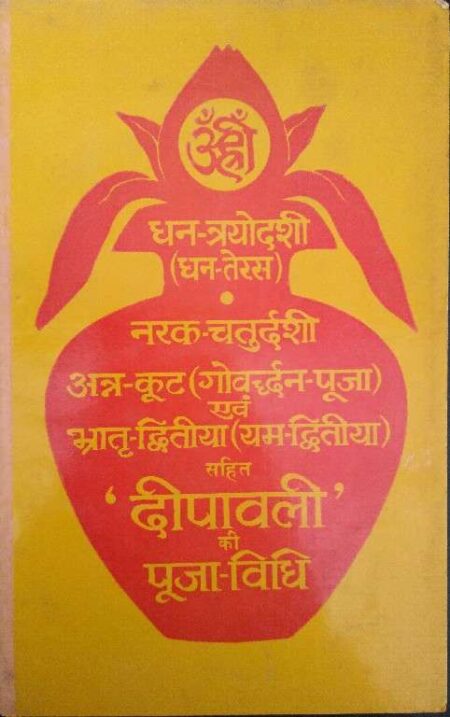 ॐ ह्रीं
धन-त्रयोदशी
(धन-तेरस)
•
नरक-चतुर्दशी
अन्न-कूट (गोवर्द्धन-पूजा)
एवं
भ्रातृ-द्वितीया (यम-द्वितीया)
सहित
‘दीपावली’
की
पूजा-विधि